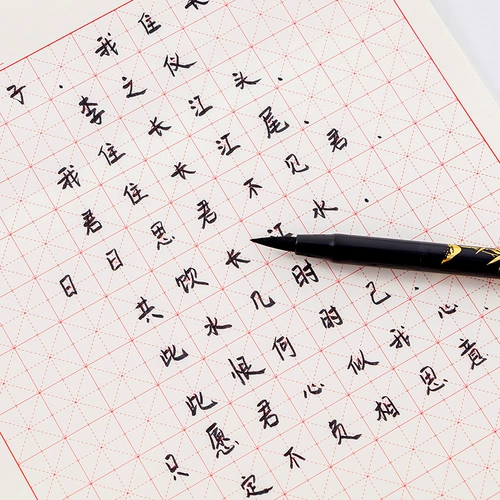 子.我住长
李之仪
我住长江头.
君住长江尾.
日日思君不见君.
共饮长江水.
此水几时
此恨何时己.
只愿君心似我心.
定不负相思意